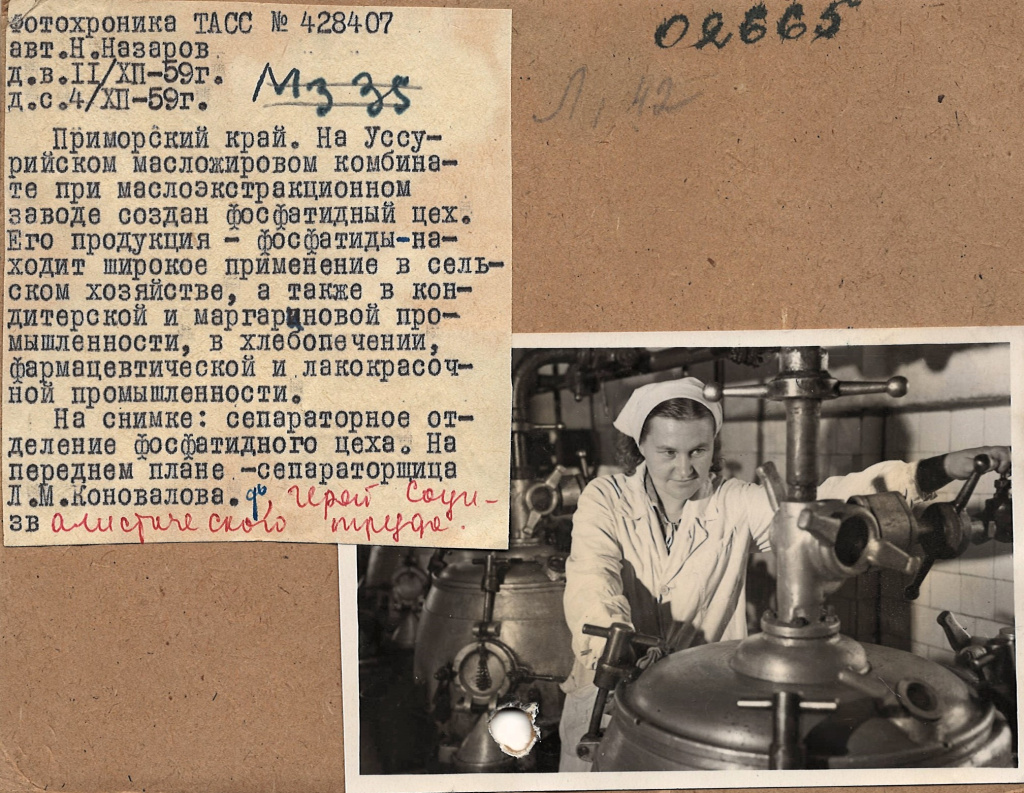 Фотохроника ТАСС № 428407
авт.Н.Назаров
д.в.II/ХП-59г.
д.с.4/ХП-59г.
М3 35
02665
42
Приморский край. На Уссу-
рийском масложировом комбина-
те при маслоэкстракционном
заводе создан фосфатидный цех.
Его продукция - фосфатиды-на-
ходит широкое применение в сель-
ском хозяйстве, а также в кон-
дитерской и маргариновой про-
мышленности, в хлебопечении,
фармацевтической и лакокрасоч-
ной промышленности.
На снимке: сепараторное от-
деление фосфатидного цеха. На
переднем плане -сепараторщица
Л.М.Коновалова. Герой Соци-
зв алистического труда.